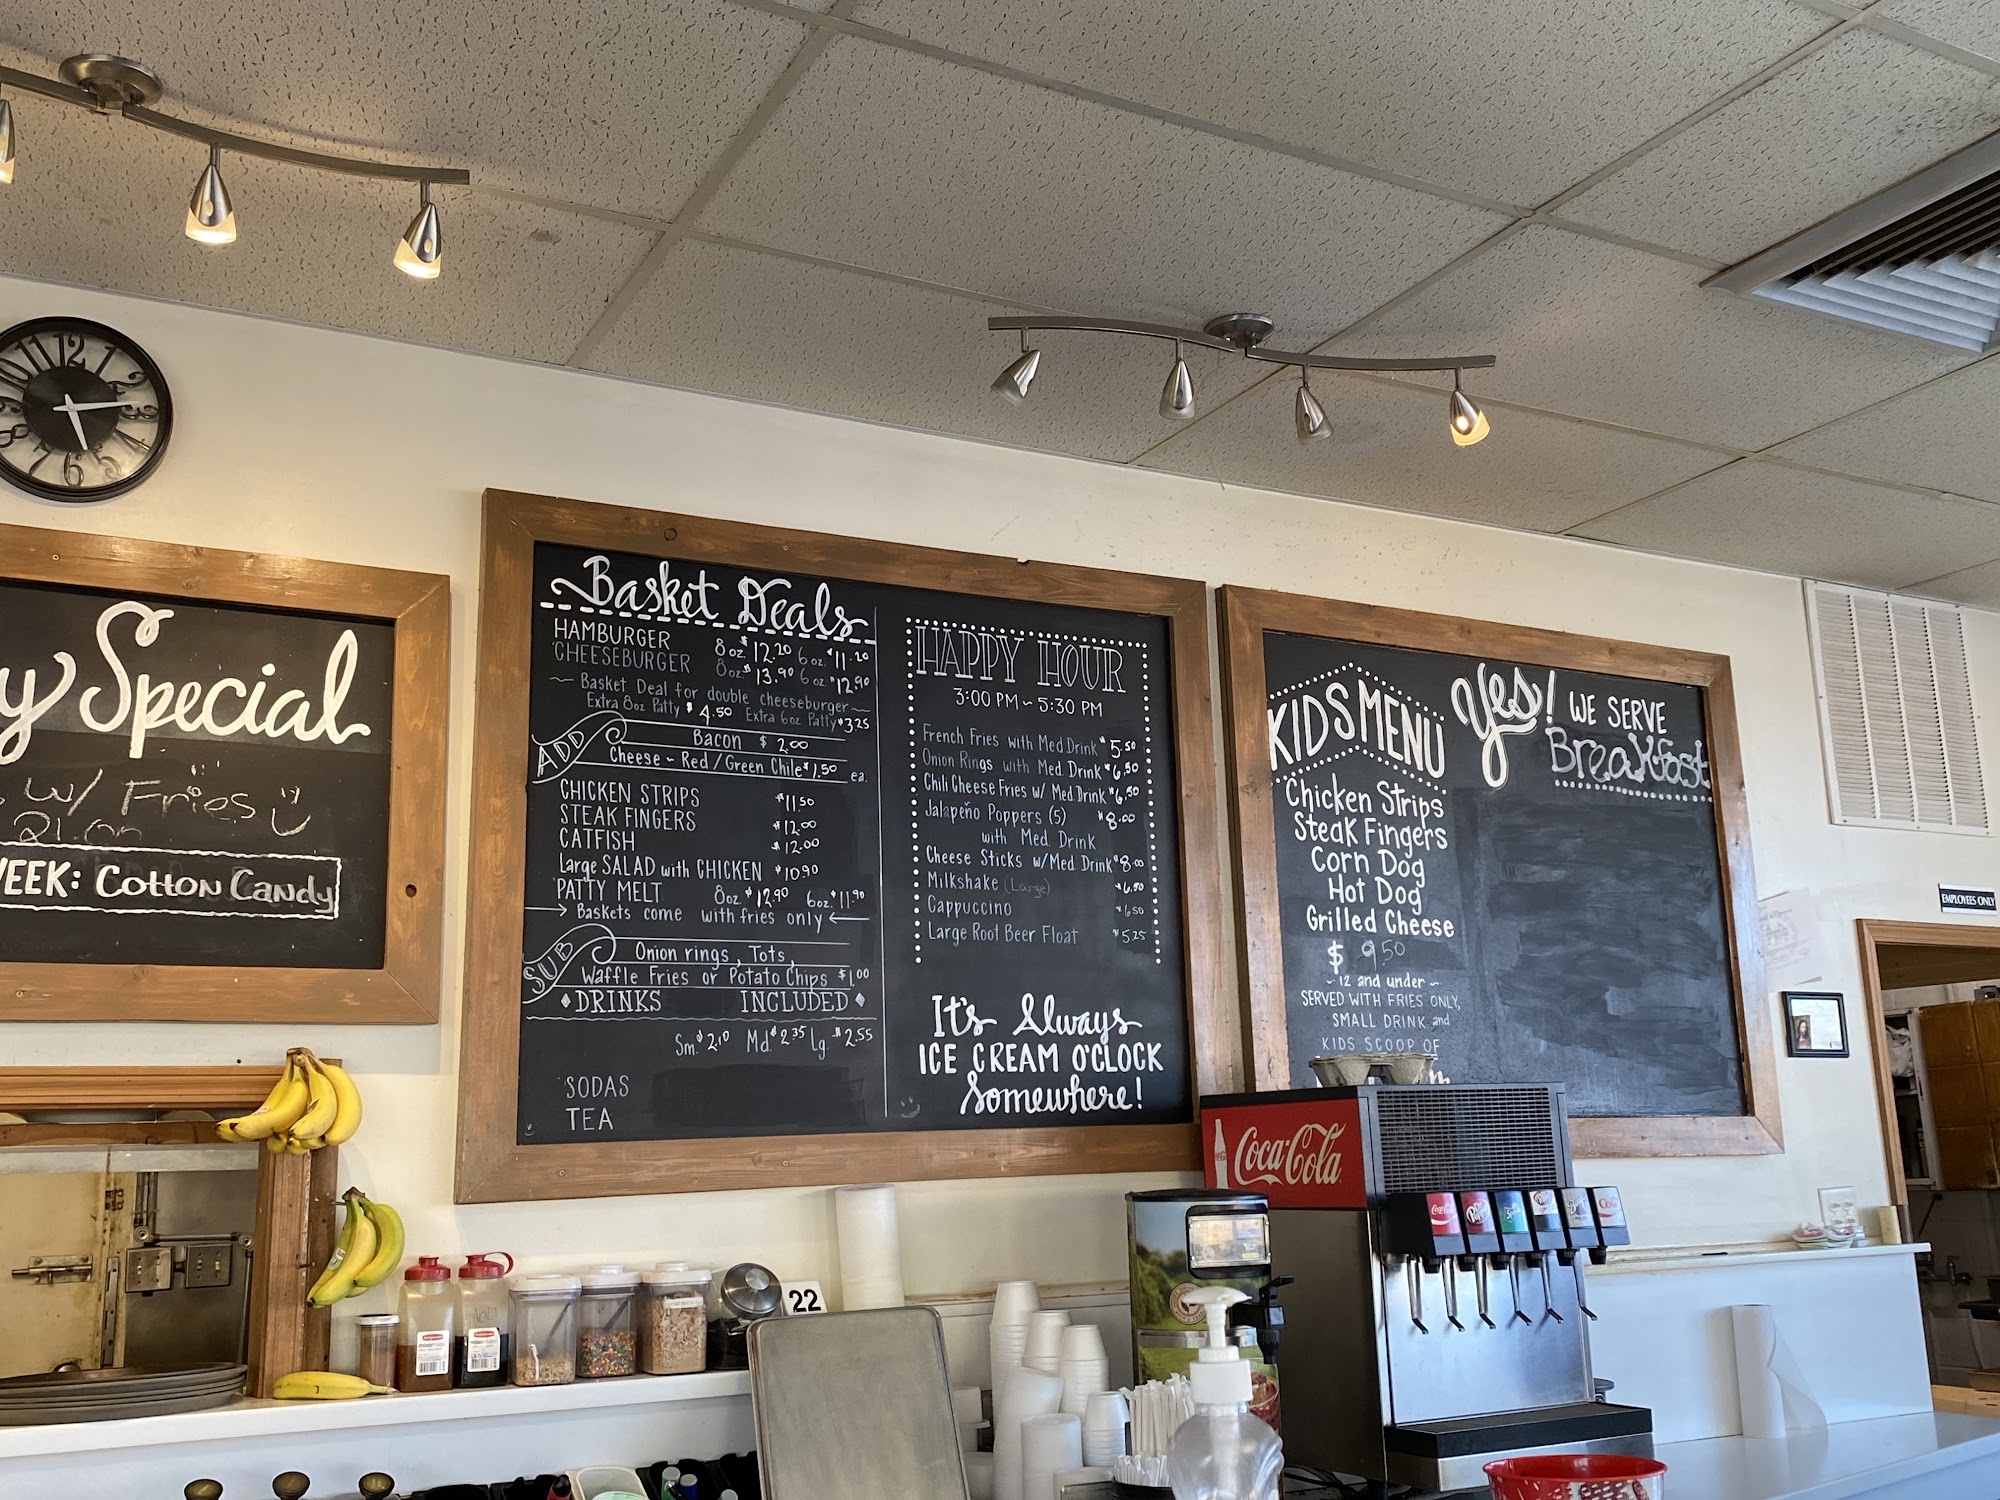 12
y Special
w/ Fries
21.00
WEEK: Cotton Candy
Basket Deals
HAMBURGER 8oz. $12.20 6oz. $11.20
CHEESEBURGER 8oz. $13.90 6oz $12.90
~ Basket Deal for double cheeseburger ~
Extra 8oz Patty $4.50 Extra 6oz Patty $3.25
ADD
Bacon $2.00
Cheese ~ Red / Green Chile $1.50 ea.
CHICKEN STRIPS $11.50
STEAK FINGERS $12.00
CATFISH $12.00
Large SALAD with CHICKEN $10.90
PATTY MELT 8oz. $12.90 6oz. $11.90
→ Baskets come with fries only ←
SUB
Onion rings, Tots,
Waffle Fries or Potato Chips $1.00
DRINKS INCLUDED
Sm. $2.10 Md. $2.35 Lg. $2.55
SODAS
TEA
HAPPY HOUR
3:00 PM ~ 5:30 PM
French Fries with Med Drink $5.50
Onion Rings with Med. Drink $6.50
Chili Cheese Fries w/ Med. Drink $6.50
Jalapeño Poppers (5) $8.00
with Med. Drink
Cheese Sticks w/Med. Drink $8.00
Milkshake (Large) $6.50
Cappuccino $6.50
Large Root Beer Float $5.25
It's Always
ICE CREAM O'CLOCK
Somewhere!
KIDS MENU
Chicken Strips
Steak Fingers
Corn Dog
Hot Dog
Grilled Cheese
$ 9.50
~ 12 and under ~
SERVED WITH FRIES ONLY,
SMALL DRINK and
KIDS SCOOP OF
Yes! WE SERVE
Breakfast
EMPLOYEES ONLY
Coca-Cola
22